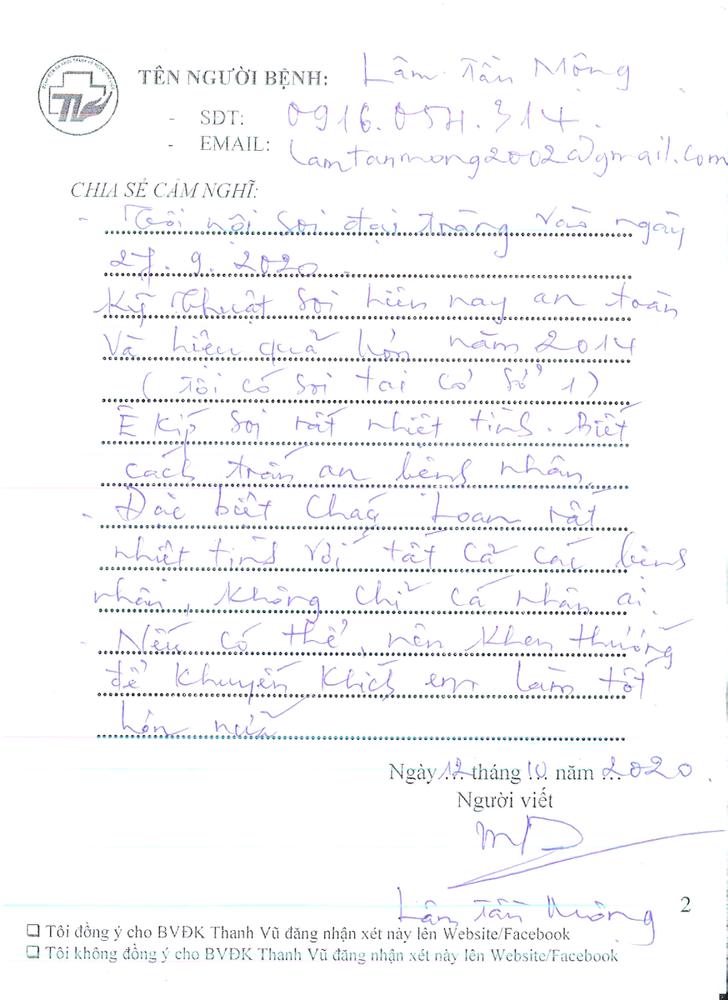 TÊN NGƯỜI BỆNH: Lâm Tấn Mộng
- SĐT: 0916.054.314.
- EMAIL: lamtanmong2002@gmail.com
CHIA SẺ CẢM NGHĨ:
- Tôi nội soi đại tràng vào ngày
27.9.2020.
Kỹ thuật soi hiện nay an toàn
Và hiệu quả hơn năm 2014
( Tôi có soi tại cơ sở 1 )
Ê Kíp soi rất nhiệt tình. Biết
cách trấn an bệnh nhân.
- Đặc biệt cháu Loan rất
nhiệt tình với tất cả các bệnh
nhân, không chỉ cá nhân ai.
- Nếu có thể, nên khen thưởng
để khuyến khích em làm tốt
hơn nữa
Ngày 12 tháng 10 năm 2020
Người viết
Lâm Tấn Mộng
2
❑ Tôi đồng ý cho BVĐK Thanh Vũ đăng nhận xét này lên Website/Facebook
❑ Tôi không đồng ý cho BVĐK Thanh Vũ đăng nhận xét này lên Website/Facebook